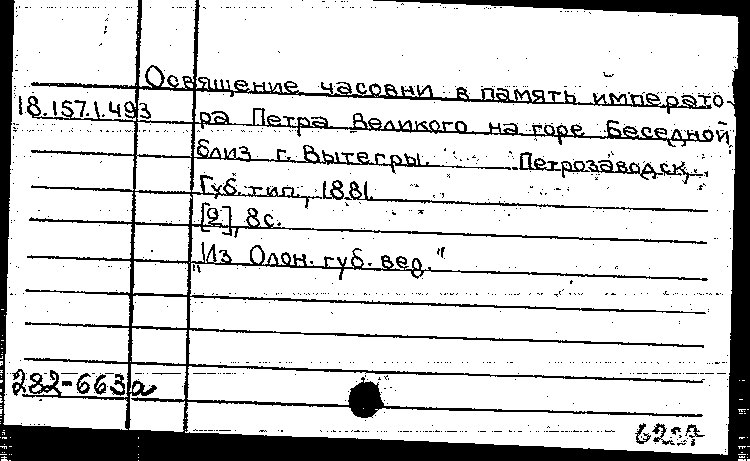 Освящение часовни в память императо-
18.157.1.493 ра Петра Великого на горе Беседной
близ г. Вытегры. Петрозаводск,
Губ. тип., 1881.
[2], 8 с.
"Из Олон. губ. вед."
282-663а